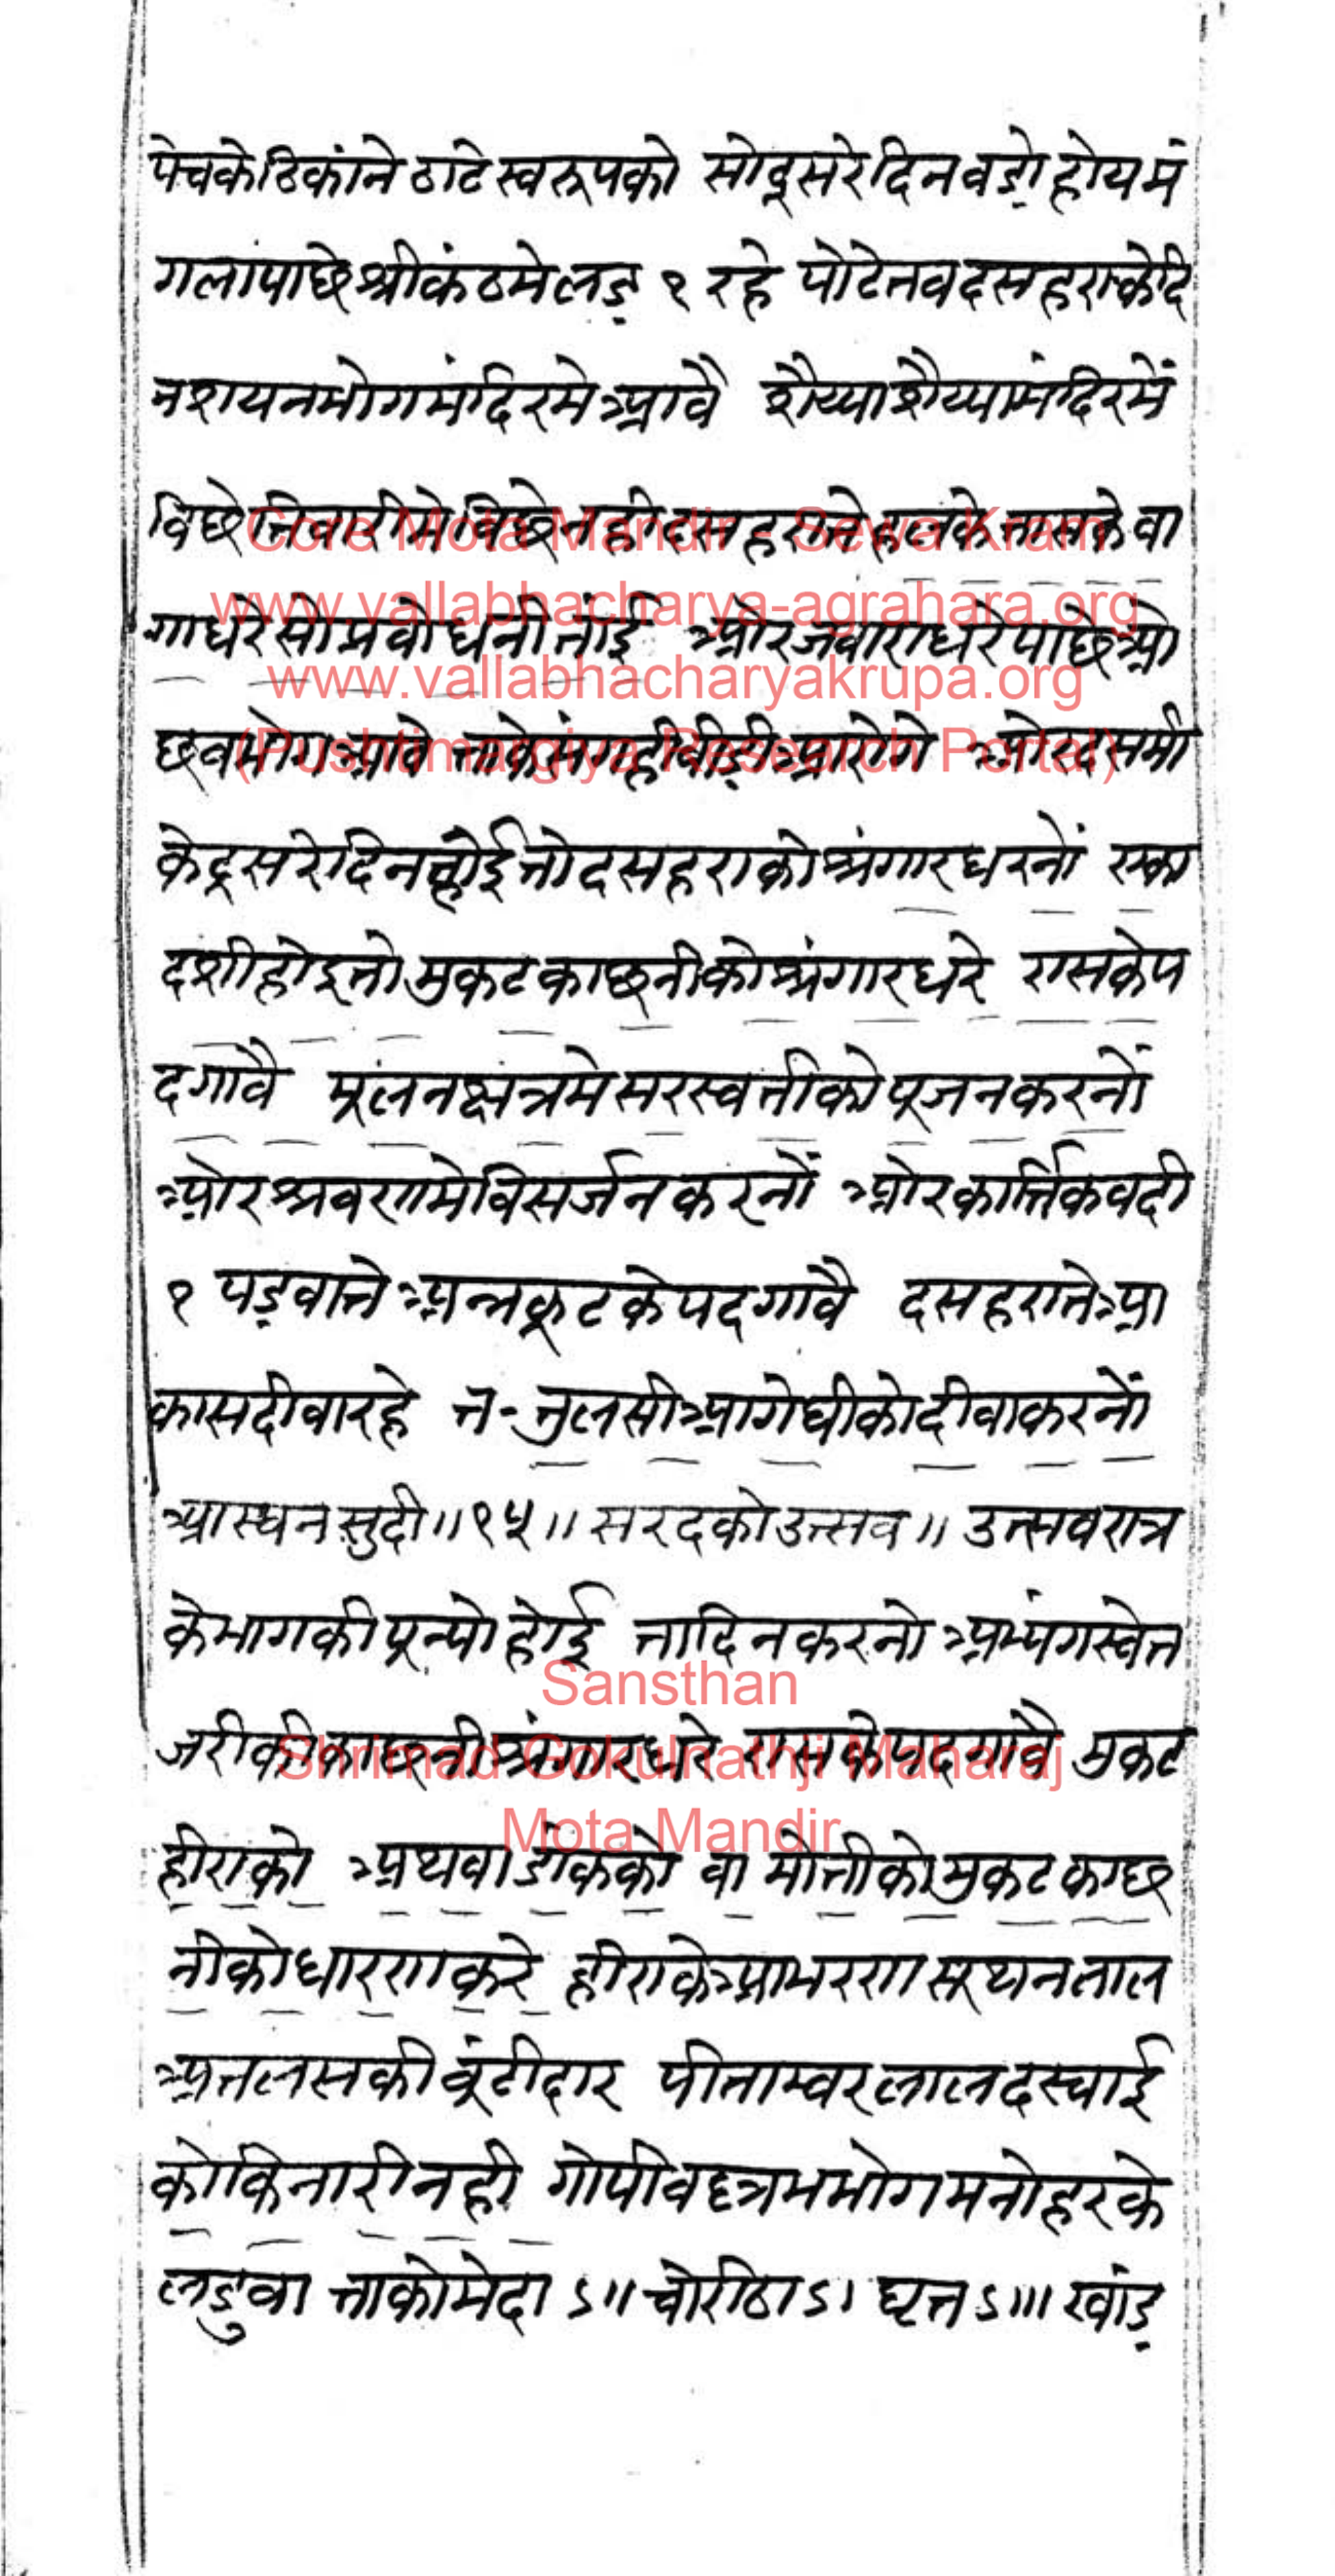 पेचकेठिकांने ठाटे स्वरूपको सोदूसरेदिन वडो होय मं
गलापाछे श्रीकंठमे लड़ १ रहे पोटे तब दसहराके दि
न शयनभोग मंदिरमे आवै शैय्या शैय्यामंदिरमें
विछे तिवारीमे विछे नही दसहराते हलके तासके वा
गा घरे सो प्रवोधनी तांई और जवारा घरे पाछे ओ
छव भोग आवे ताके संगही वीड़ी आरोगे और दसमी
के दूसरे दिन होई तो दसहराको श्रंगार धरनों एका
दशी होइ तो मुकट काछनीको श्रंगार धरे रासके प
द गावै मूल नक्षत्रमे सरस्वतीको पूजन करनों
और श्रवणमे विसर्जन करनों और कार्त्तिक वदी
१ पड़वाते अन्नकूटके पद गावै दसहराते आ
कासदीवा रहे त॰ तुलसी आगे घीको दीवा करनों
आस्वन सुदी॥१५॥ सरदको उत्सव॥ उत्सव रात्र
के भागकी पून्यो होई तादिन करनो अभ्यंग स्वेत
जरीकी काछनी श्रंगार धरे रासके पद गावै मुकट
हीराको अथवा डांकको वा मोतीको मुकट काछ
नीको धारण करे हीराके आभरण सूथन लाल
अतलसकी बूंटीदार पीताम्बर लाल दरयाई
को किनारी नही गोपीवल्लभ भोग मनोहरके
लडुवा ताको मेदा ऽ॥ चोरीठा ऽ। घृत ऽ॥। खांड़
Core Mota Mandir - Sewa Kram
www.vallabhacharya-agrahara.org
www.vallabhacharyakrupa.org
(Pushtimargiya Research Portal)
Sansthan
Shrimad Gokulnathji Maharaj
Mota Mandir